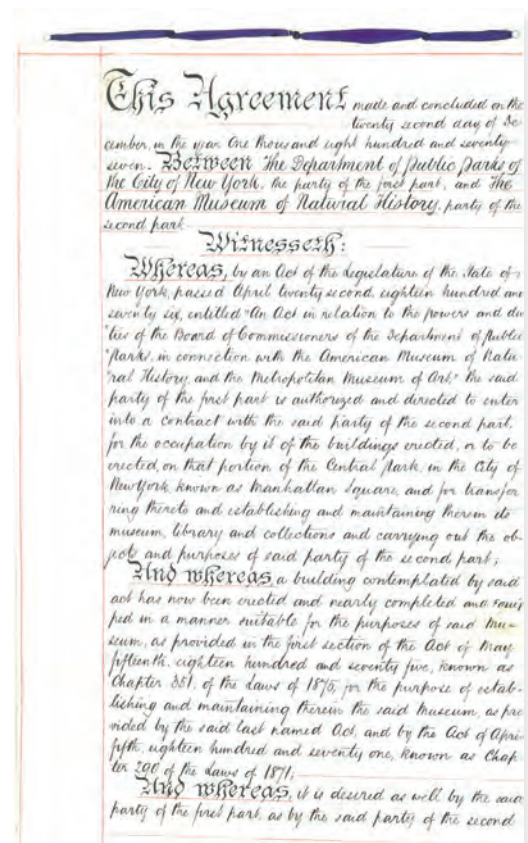 This Agreement made and concluded on the
twenty second day of De
cember, in the year One thousand and eight hundred and seventy
seven. Between The Department of Public Parks of
the City of New York, the party of the first part, and The
American Museum of Natural History, party of the
second part
Witnesseth:
Whereas, by an Act of the Legislature of the State of
New York, passed April twenty second, eighteen hundred and
seventy six, entitled "An Act in relation to the powers and du
"ties of the Board of Commissioners of the Department of Public
"Parks, in connection with the American Museum of Natu
"ral History, and the Metropolitan Museum of Art," the said
party of the first part is authorized and directed to enter
into a contract with the said party of the second part,
for the occupation by it of the buildings erected, or to be
erected, on that portion of the Central Park, in the City of
New York, known as Manhattan Square, and for transfer
ring thereto and establishing and maintaining therein its
museum, library and collections and carrying out the ob-
jects and purposes of said party of the second part;
And whereas, a building contemplated by said
act has now been erected and nearly completed and equip
ped in a manner suitable for the purposes of said Mu-
seum, as provided in the first section of the Act of May
fifteenth, eighteen hundred and seventy five, known as
Chapter 351, of the Laws of 1875, for the purpose of estab-
lishing and maintaining therein the said Museum, as pro
vided by the said last named Act, and by the Act of April
fifth, eighteen hundred and seventy one, known as Chap
ter 290 of the Laws of 1871;
And whereas, it is desired as well by the said
party of the first part, as by the said party of the second